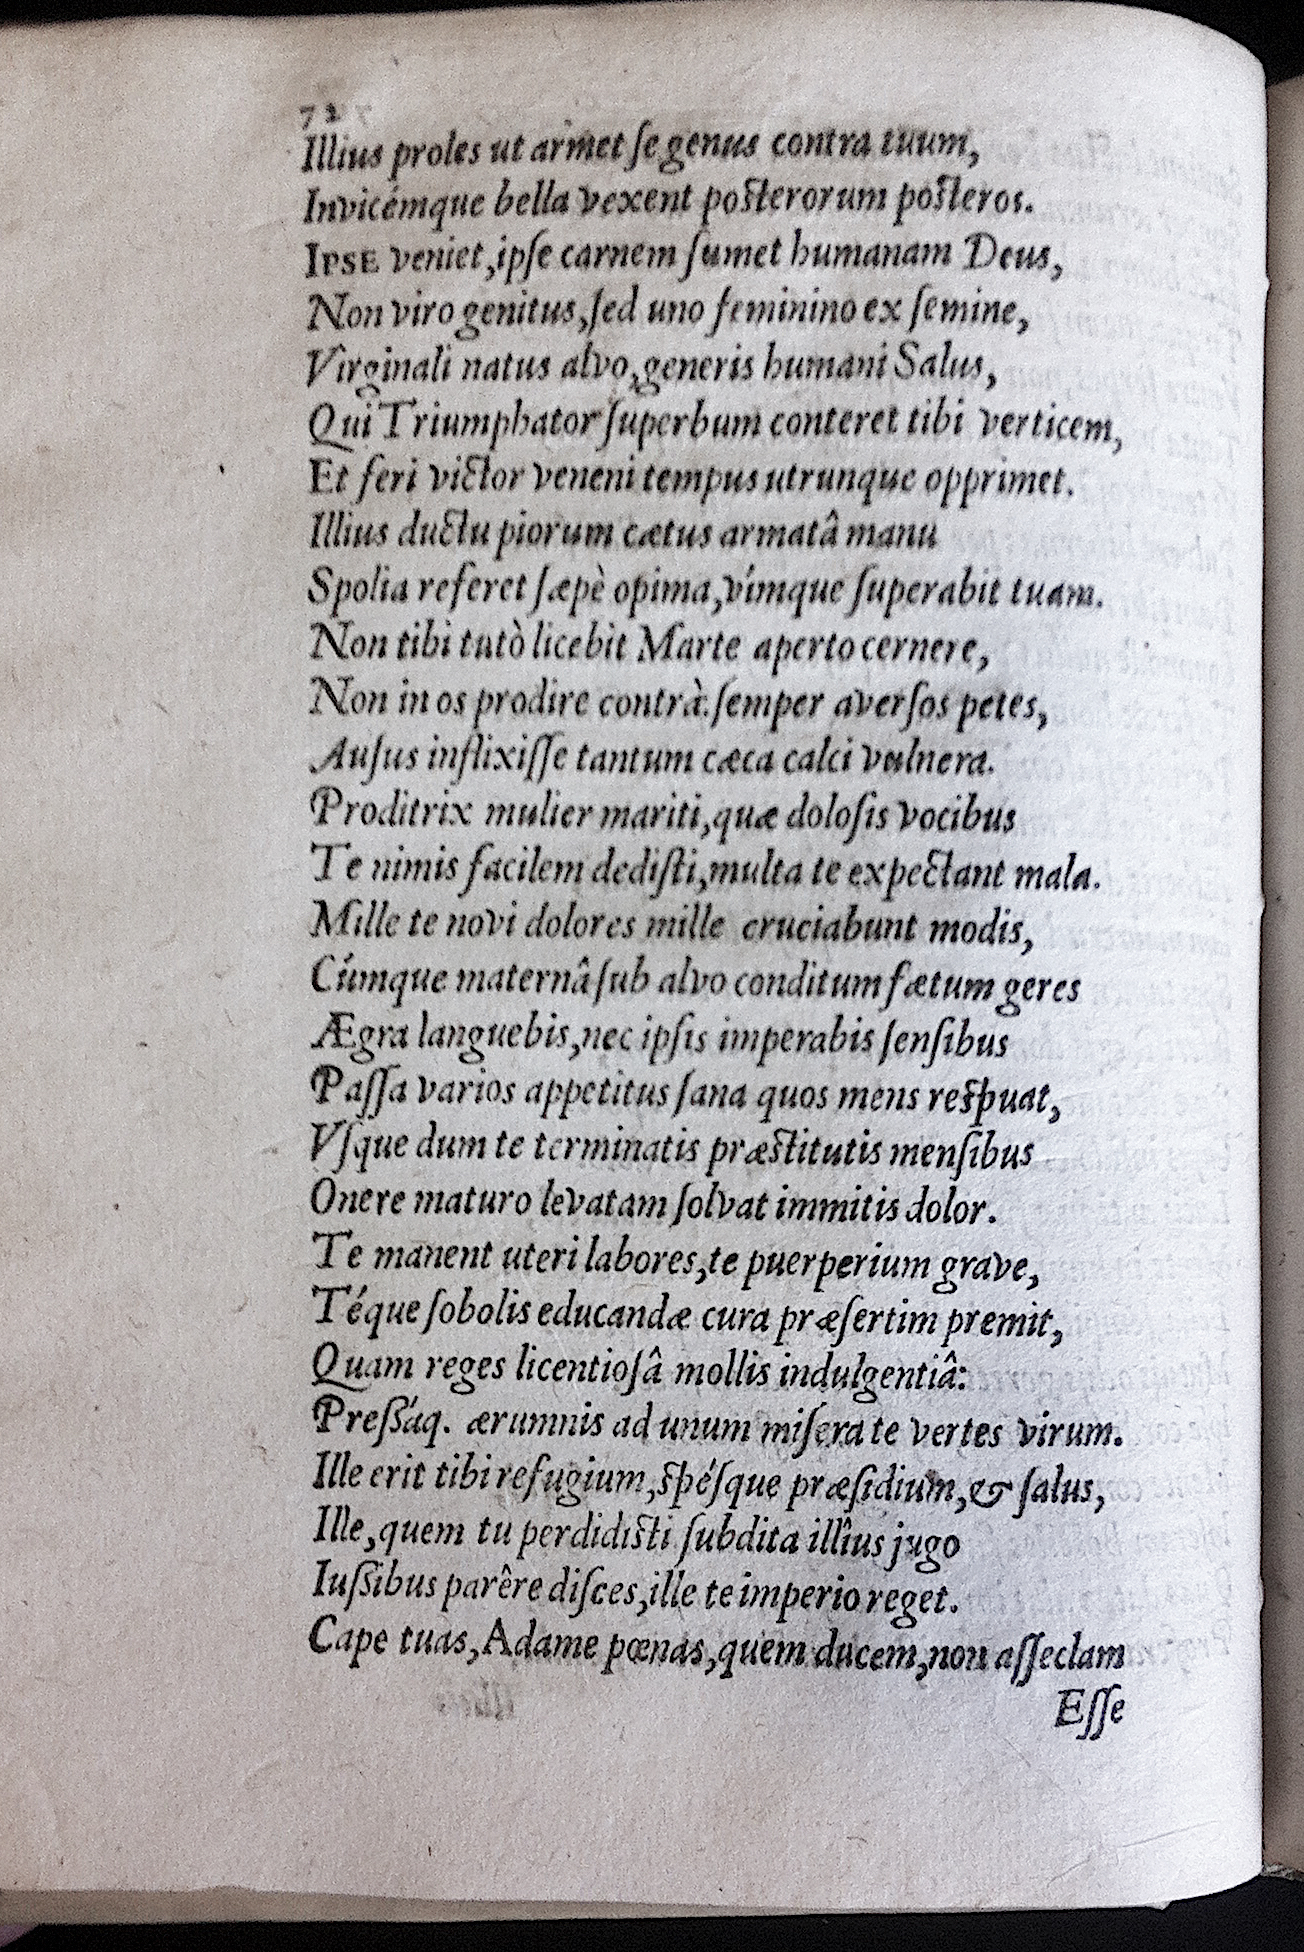 72
Illius proles ut armet ſe genus contra tuum,
Invicémque bella vexent poſterorum poſteros.
IPSE veniet, ipſe carnem ſumet humanam Deus,
Non viro genitus, ſed uno feminino ex ſemine,
Virginali natus alvo, generis humani Salus,
Qui Triumphator ſuperbum conteret tibi verticem,
Et feri victor veneni tempus utrunque opprimet.
Illius ductu piorum cætus armatâ manu
Spolia referet ſæpè opima, vímque ſuperabit tuam.
Non tibi tutò licebit Marte aperto cernere,
Non in os prodire contrà: ſemper averſos petes,
Auſus inflixiſſe tantum cæca calci vulnera.
Proditrix mulier mariti, quæ doloſis vocibus
Te nimis facilem dediſti, multa te expectant mala.
Mille te novi dolores mille cruciabunt modis,
Cúmque maternâ ſub alvo conditum fætum geres
Ægra languebis, nec ipſis imperabis ſenſibus
Paſſa varios appetitus ſana quos mens reſpuat,
Vſque dum te terminatis præſtitutis menſibus
Onere maturo levatam ſolvat immitis dolor.
Te manent uteri labores, te puerperium grave,
Téque ſobolis educandæ cura præſertim premit,
Quam reges licentioſâ mollis indulgentiâ:
Preßáq. ærumnis ad unum miſera te vertes virum.
Ille erit tibi refugium, ſpéſque præſidium, & ſalus,
Ille, quem tu perdidiſti ſubdita illîus jugo
Iuſſibus parêre diſces, ille te imperio reget.
Cape tuas, Adame pœnas, quem ducem, non aſſeclam
Eſſe